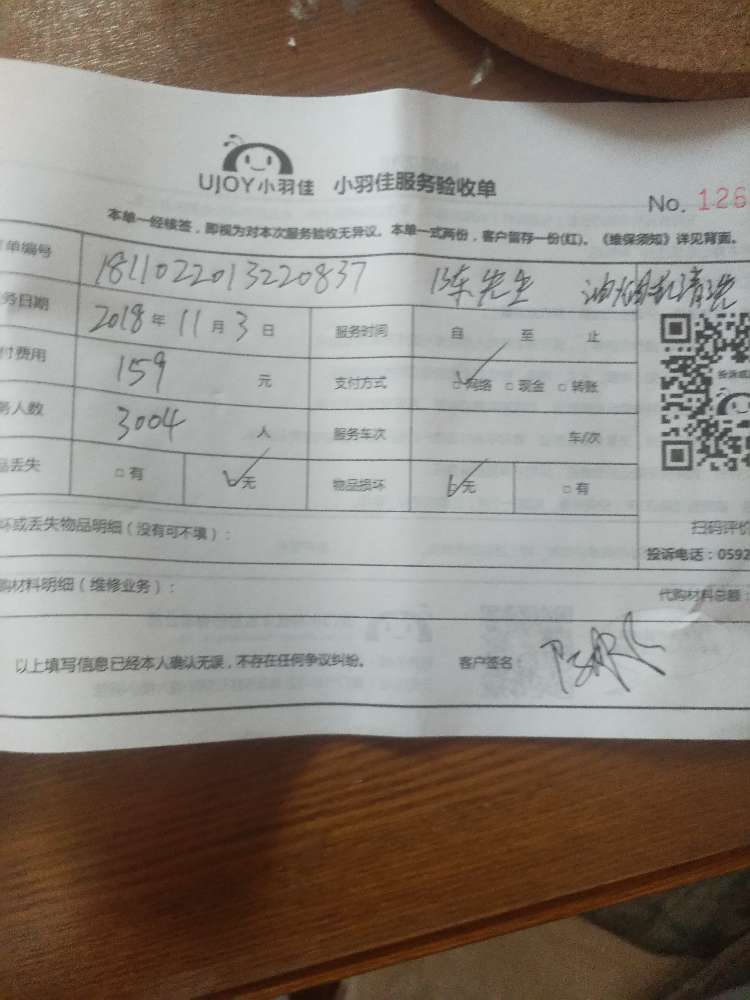 UJOY小羽佳 小羽佳服务验收单
No. 126
本单一经核签，即视为对本次服务验收无异议。本单一式两份，客户留存一份(红)。《维保须知》详见背面。
单编号 1811022013220837 陈先生 油烟机清洗
务日期 2018年11月3日 服务时间 自 至 止
付费用 159 元 支付方式 ☑网络 □现金 □转账
务人数 3004 人 服务车次 车/次
品丢失 □有 ☑无 物品损坏 ☑无 □有
坏或丢失物品明细（没有可不填）：
扫码评价
投诉电话：0592
购材料明细（维修业务）：
代购材料总额：
以上填写信息已经本人确认无误，不存在任何争议纠纷。 客户签名：